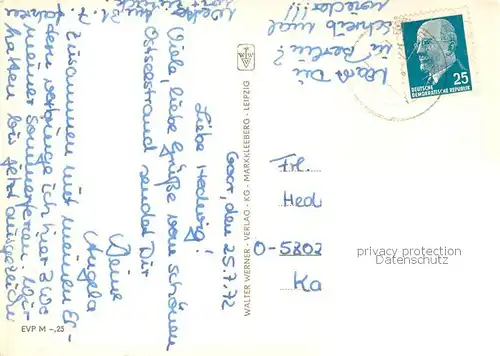 Gaor, den 25.7.72
Liebe Hedwig!
Viele, liebe Grüße vom schönen
Ostseestrand sendet Dir
Deine
Angela
Zusammen und meinen El-
tern verbringe ich hier 3 Wo
meiner Sommerferien. Wir
hatten bis jetzt
am 31. 7.
Warst Du
in Berlin?
Schreib mal
wieder!!!
DEUTSCHE
DEMOKRATISCHE REPUBLIK
25
WALTER WERNER - VERLAG - KG - MARKKLEEBERG - LEIPZIG
Frl.
Hed
O-5802
Ka
privacy protection
Datenschutz
EVP M -,25